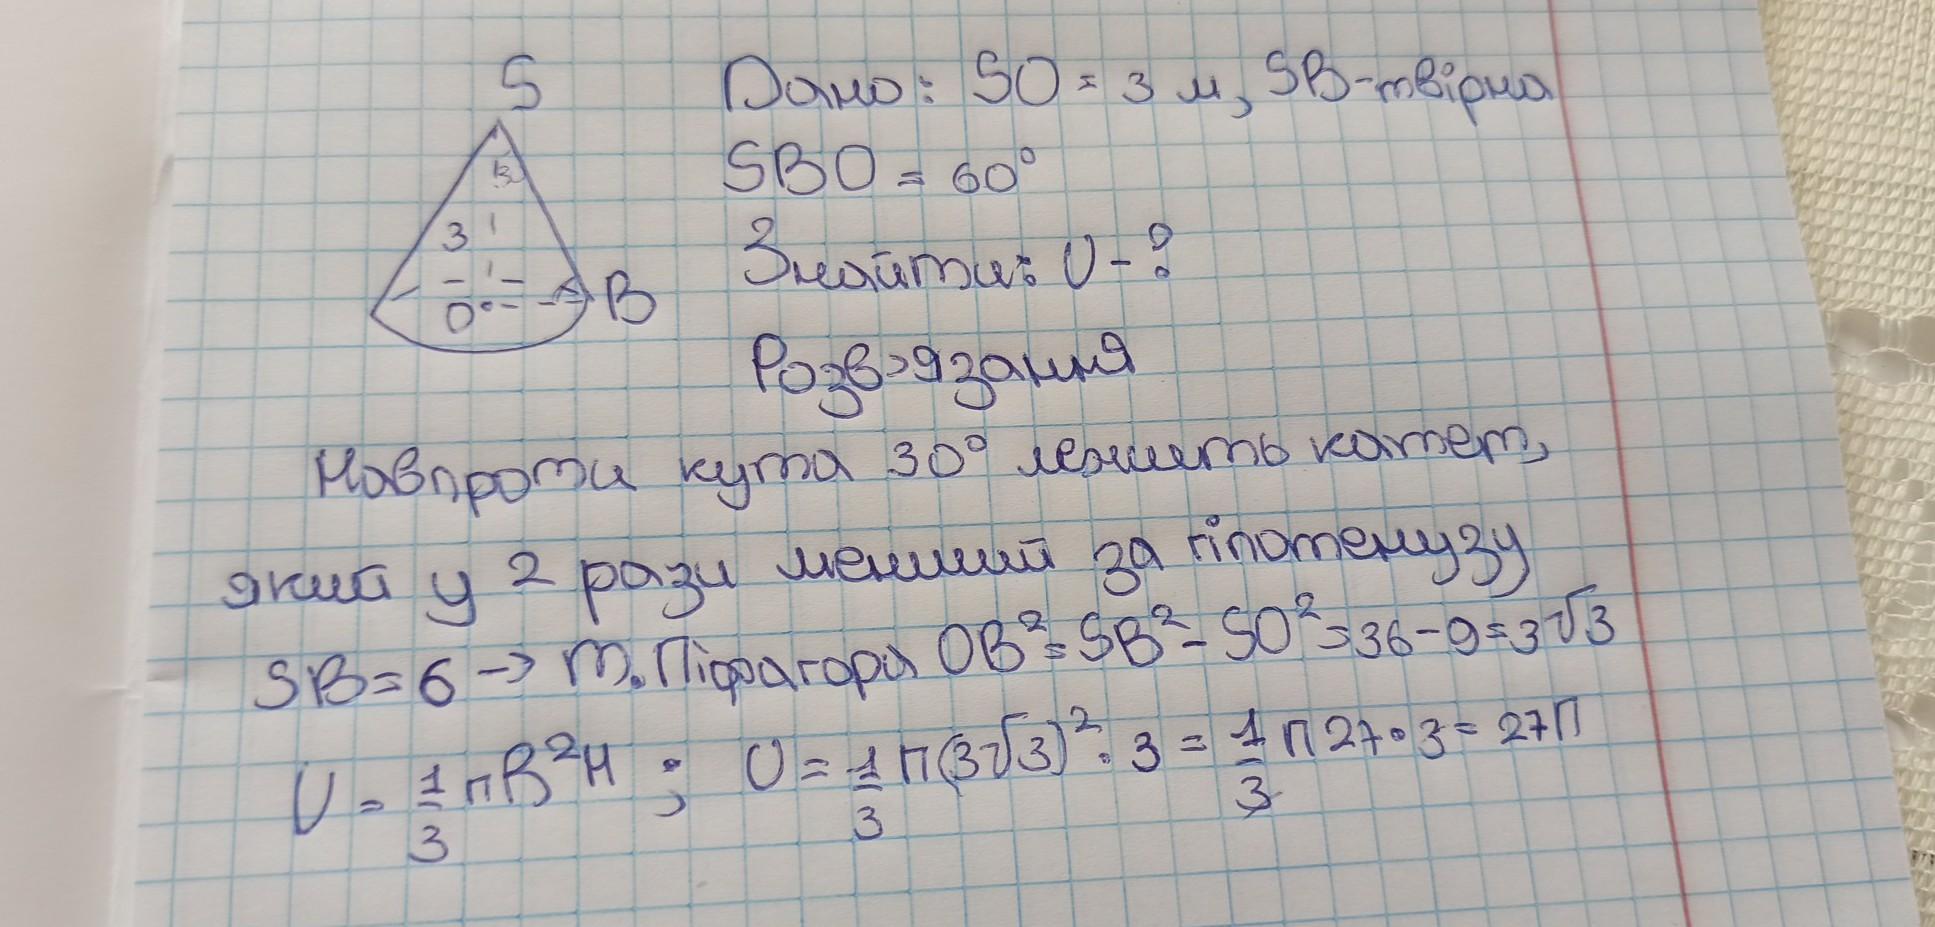 S
3
O
B
Дано: SO = 3 м, SB-твірна
SBO = 60°
Знайти: V - ?
Розв'язання
Навпроти кута 30° лежить катет,
який у 2 рази менший за гіпотенузу
SB = 6 → т. Піфагора OB² = SB² - SO² = 36 - 9 = 3√3
V = 1/3 πR²H ; V = 1/3 π(3√3)² · 3 = 1/3 π 27 · 3 = 27π